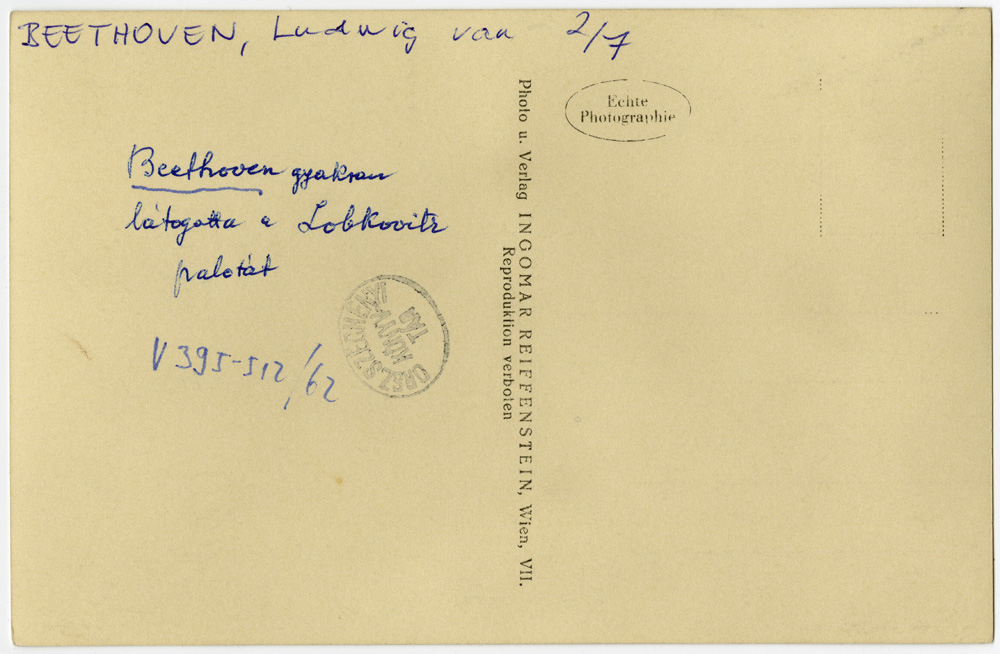 BEETHOVEN, Ludwig van 2/7
Beethoven gyakran
látogatta a Lobkovitz
palotát
V 395-512/62
ORSZ. SZÉCHÉNYI
KÖNYV
TÁR
Photo u. Verlag INGOMAR REIFFENSTEIN, Wien, VII.
Reproduktion verboten
Echte
Photographie